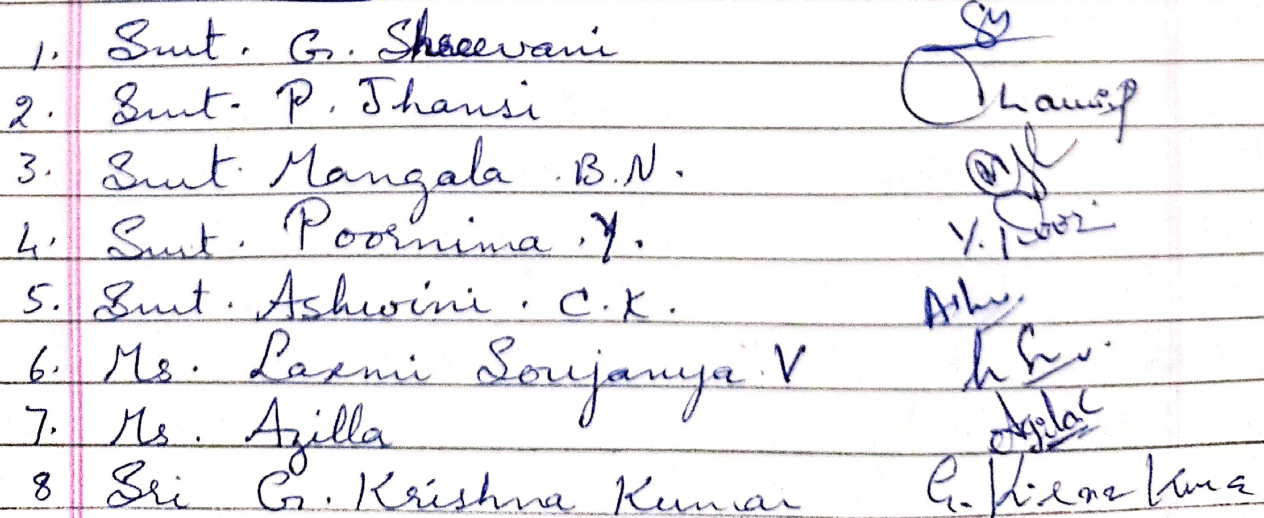 1. Smt. G. Shreevani
2. Smt. P. Jhansi
3. Smt. Mangala .B.N.
4. Smt. Poornima .Y. Y. Poor
5. Smt. Ashwini . C.K. Ashw.
6. Ms. Laxmi Soujanya V
7. Ms. Azilla
8 Sri G. Krishna Kumar